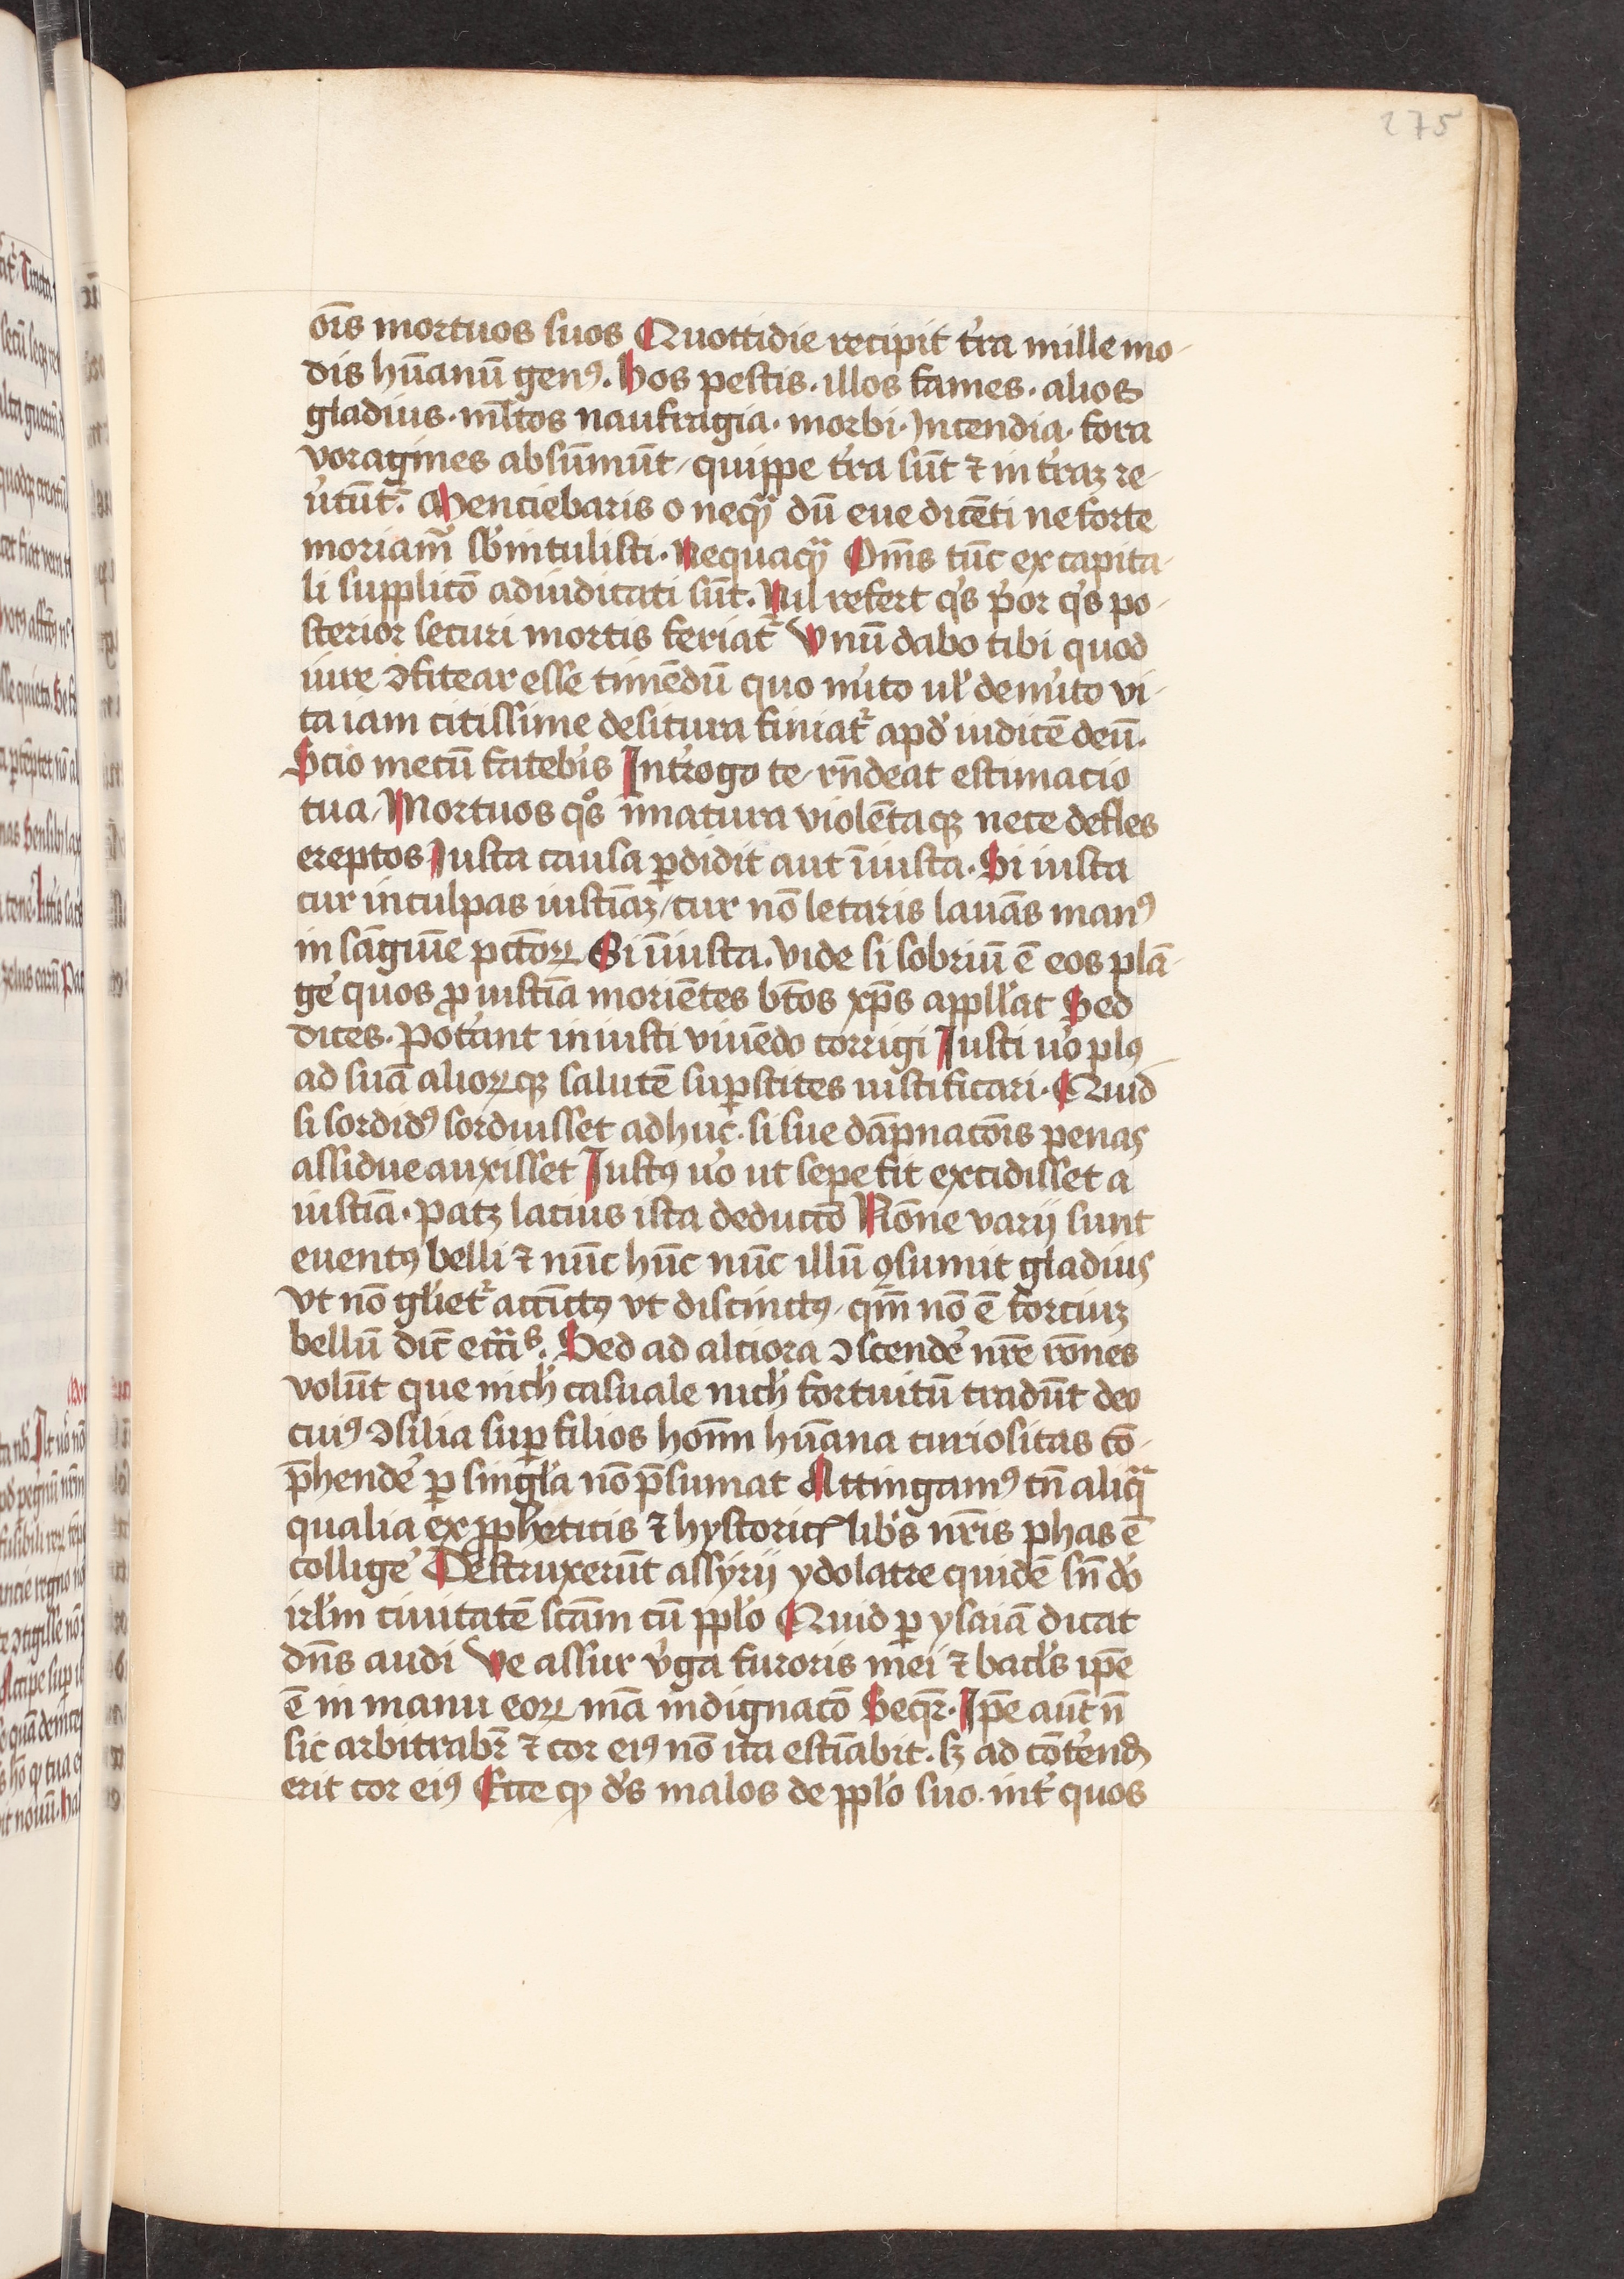 275
om̄s mortuos suos Quottidie recipit t'ra mille mo-
dis hūanū genꝰ. Hos pestis. illos fames. alios
gladius. ml̄tos naufragia. morbi. Incendia. fora
voragines absūmūt, quippe t'ra sūt ⁊ in t'raꝫ re-
u'tūt᷑. Menciebaris o neqᷓꝫ dū eue dicēti ne forte
moriam᷑ sb'intulisti. Nequaqᷓꝫ Om̄s tūc ex capita-
li supplicō adiudicati sūt. Nil refert qⁱs pⁱor qⁱs po-
sterior securi mortis feriat᷑ Vnū dabo tibi quod
iure ↄfitear esse timēdū quo nūto ul' de nūto vi-
ta iam citissime desitura finiat᷑ apd' iudicē deū.
Scio mecū fateb'is Int'rogo te, rn̄deat estimacio
tua, Mortuos qͦs īmatura violētaqꝫ nece defles
ereptos Iusta causa ꝑdidit aut īiusta. Si iusta
cur inculpas iustīaꝫ, cur nō letaris lauās manꝰ
in sāguīe pct̄oꝝ Si īiusta. vide si sobriū ē eos plā-
ge' quos ꝓ iustīa moriētes bt̄os xp̄s appll'at Sed
dices. Pot'ant iniusti viuēdo corrigi Iusti u'o plꝰ
ad suā alioꝝqꝫ salutē suꝑstites iustificari. Quid
si sordidꝰ sorduisset adhuc. si sue dāpnacōis penas
assidue auxisset Iustꝰ u'o ut sepe fit excidisset a
iustīa. Patꝫ lacius ista deductō Nōne varij sunt
euentꝰ belli ⁊ nūc hūc nūc illū ꝯsumit gladius
Vt nō gl'iet᷑ accīctꝰ vt discinctꝰ, qm̄ nō ē forciuꝫ
bellū dic̄ ecc̄ᵃˢ. Sed ad alciora ↄscende' nr̄e rōnes
volūt que nich' casuale nich' fortuitū tradūt deo
cuiꝰ ↄsilia suꝑ filios hoīm hūana curiositas cō-
p̄hende' ꝑ singl'a nō p̄sumat Attingamꝰ tn̄ aliqᷓ
qualia ex ꝓpheticis ⁊ hystoricꝭ lib'is nr̄is phas ē
collige' Destruxerūt assyrij ydolatre quidē sn̄ d'o
irl'm ciuitatē scām cū ppl'o Quid ꝑ ysaiā dicat
dn̄s audi Ve assur v'ga furoris mei ⁊ bacl's ip̄e
ē in manu eoꝝ mā indignacō Seqr̄. Ip̄e aūt n̄
sic arbitrabr̄ ⁊ cor eiꝰ nō ita estīabit. sꝫ ad cōt'end'
erit cor eiꝰ Ecce qꝫ d's malos de ppl'o suo. int' quos